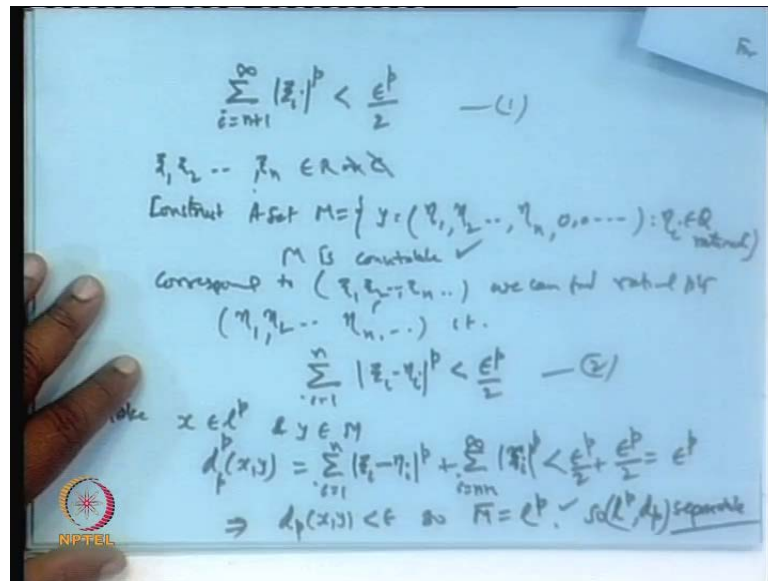 \sum_{i=n+1}^{\infty} |ξ_i|^p < \frac{ε^p}{2} —(1)
ξ_1 ξ_2 -- , ξ_n ∈ R
Construct A set M = { y = (η_1, η_2 .., η_n, 0, 0, ----) : η_i ∈ Q
rational}
M is countable ✓
Correspond to (ξ_1, ξ_2 --, ξ_n ..) we can find rational
(η_1, η_2 -- η_n, ...) st.
\sum_{i=1}^{n} |ξ_i - η_i|^p < \frac{ε^p}{2} —(2)
x ∈ l^p & y ∈ M
d_p^p(x,y) = \sum_{i=1}^{n} |ξ_i - η_i|^p + \sum_{i=n+1}^{∞} |ξ_i|^p < \frac{ε^p}{2} + \frac{ε^p}{2} = ε^p
⇒ d_p(x,y) < ε so \bar{M} = l^p. ✓ So (l^p, d_p) separable
NPTEL